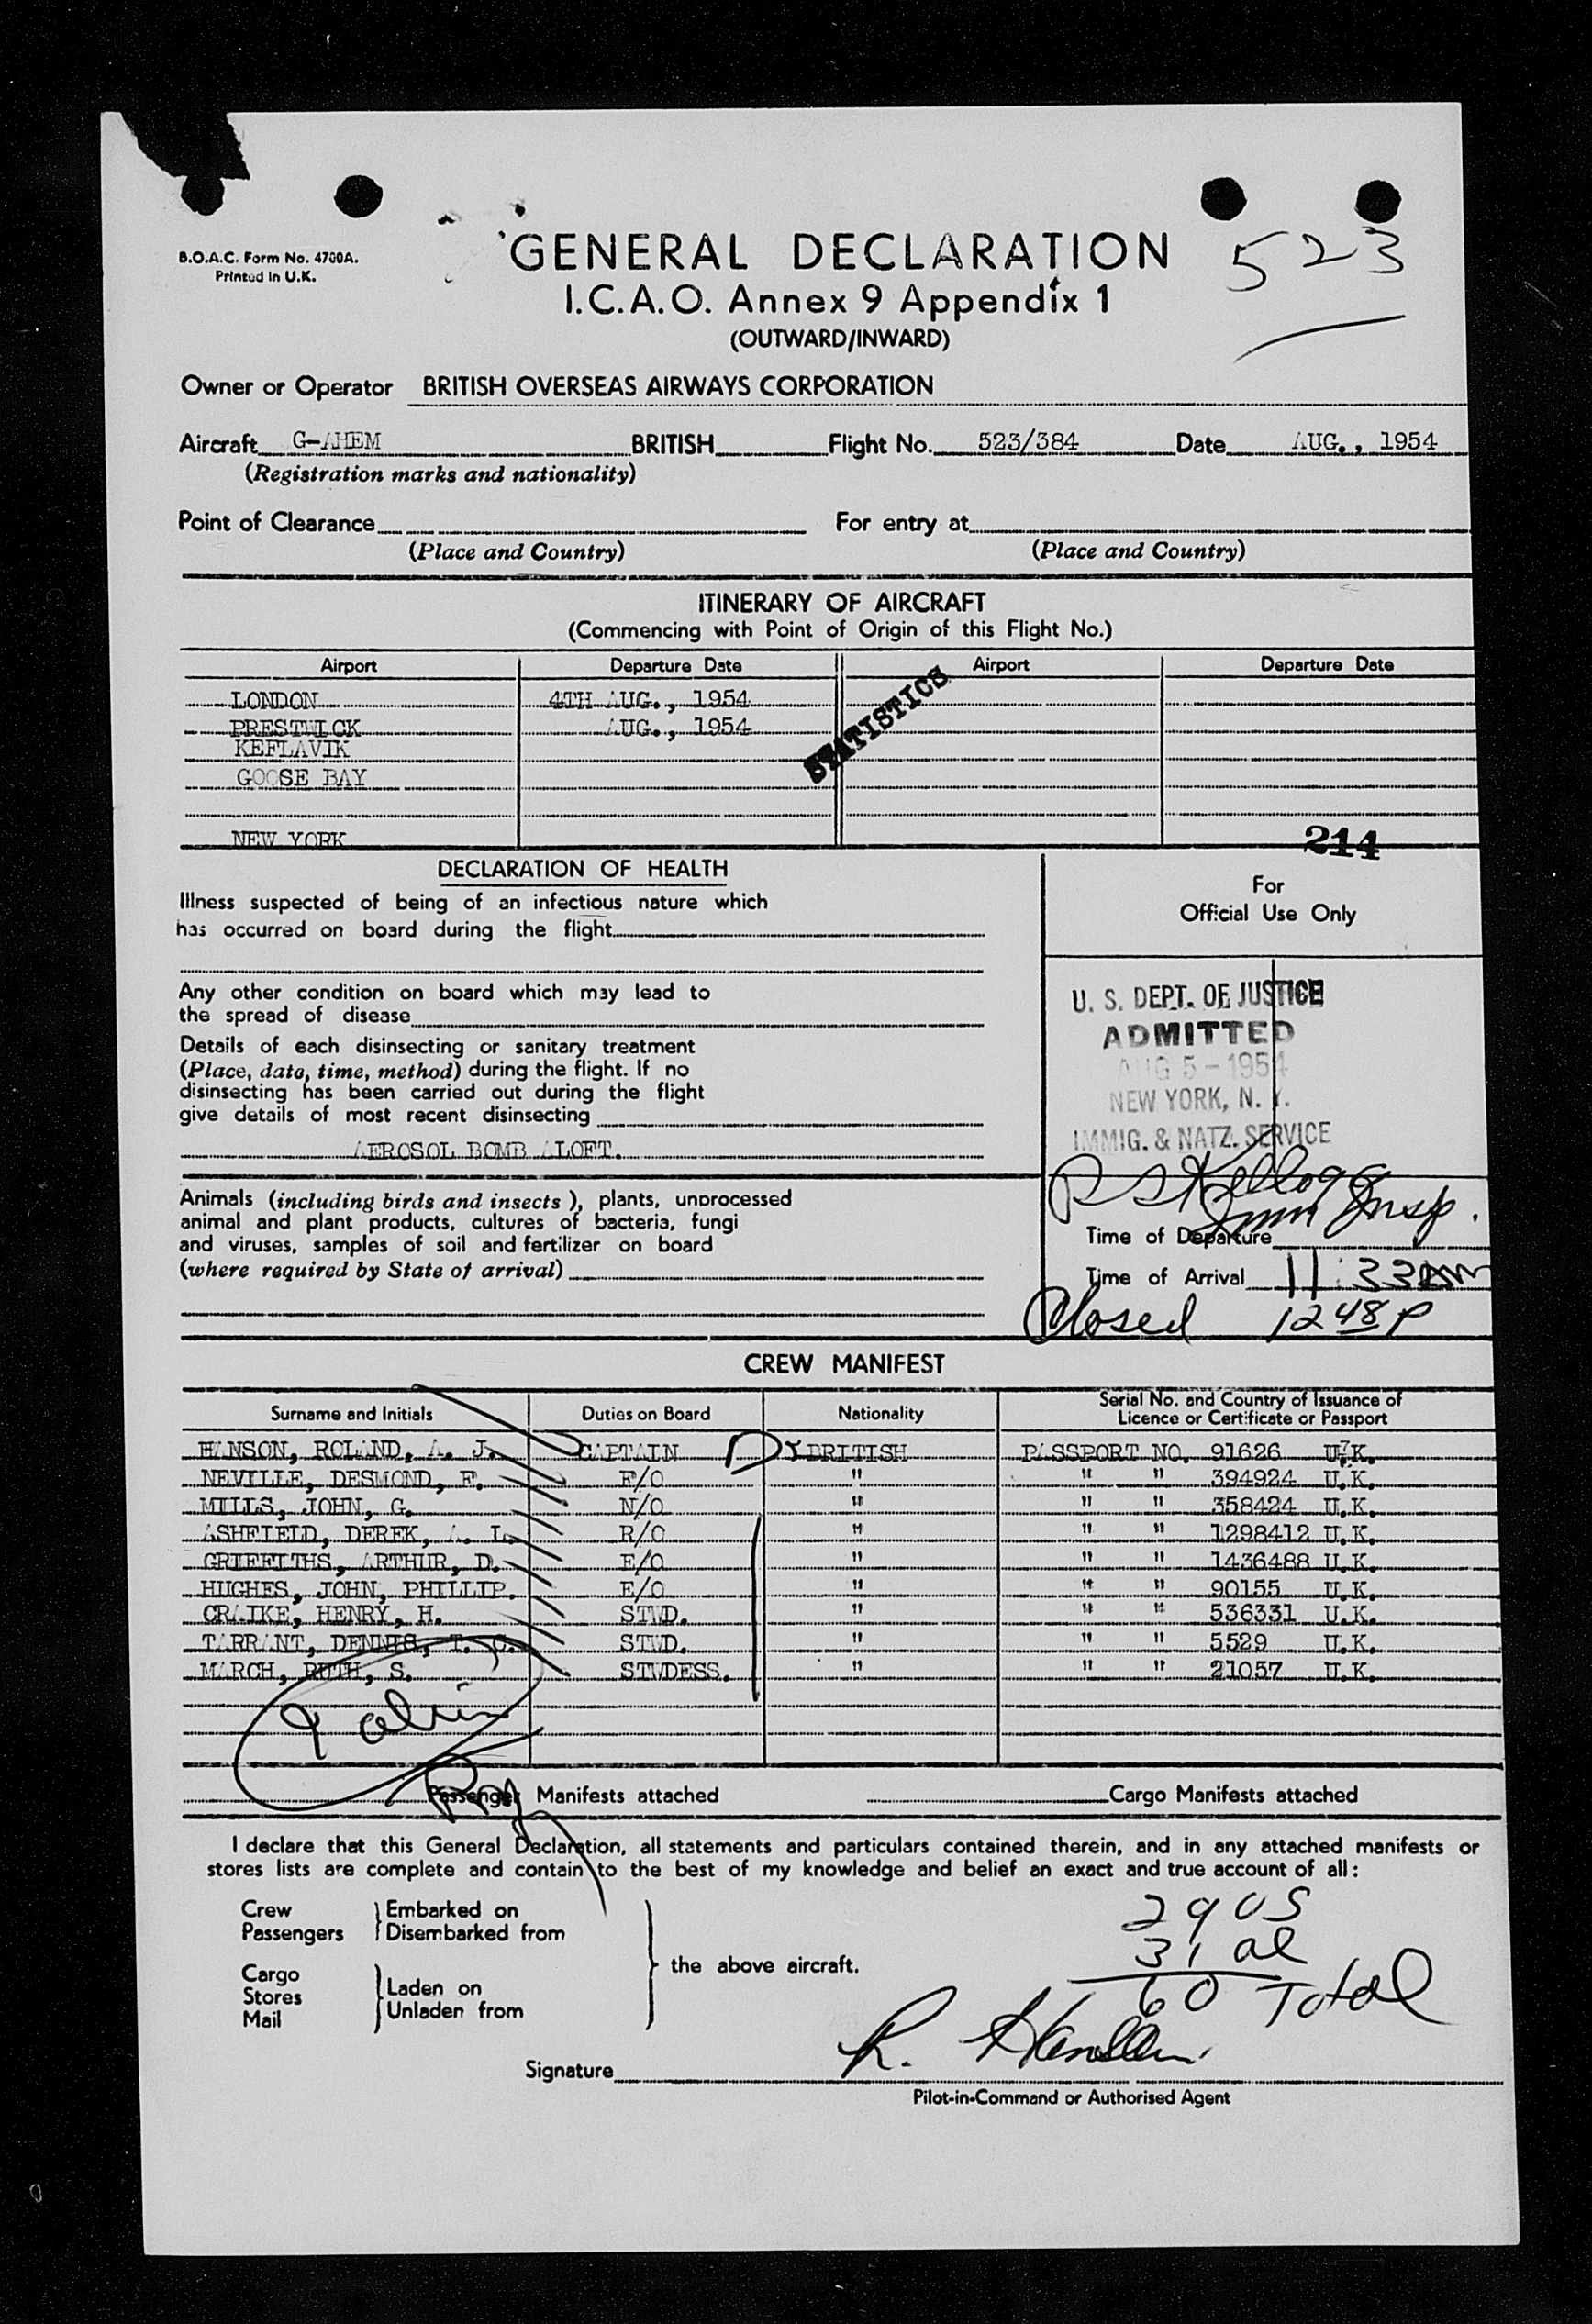 B.O.A.C. Form No. 4700A.
Printed in U.K.
GENERAL DECLARATION
523
I.C.A.O. Annex 9 Appendix 1
(OUTWARD/INWARD)
Owner or Operator BRITISH OVERSEAS AIRWAYS CORPORATION
Aircraft G-AHEM BRITISH Flight No. 523/384 Date AUG., 1954
(Registration marks and nationality)
Point of Clearance For entry at
(Place and Country) (Place and Country)
ITINERARY OF AIRCRAFT
(Commencing with Point of Origin of this Flight No.)
Airport Departure Date Airport Departure Date
LONDON 4TH AUG., 1954
PRESTWICK AUG., 1954
KEFLAVIK
GOOSE BAY
STATISTICS
NEW YORK
214
DECLARATION OF HEALTH
Illness suspected of being of an infectious nature which
has occurred on board during the flight
Any other condition on board which may lead to
the spread of disease
Details of each disinsecting or sanitary treatment
(Place, date, time, method) during the flight. If no
disinsecting has been carried out during the flight
give details of most recent disinsecting
AEROSOL BOMB ALOFT.
Animals (including birds and insects), plants, unprocessed
animal and plant products, cultures of bacteria, fungi
and viruses, samples of soil and fertilizer on board
(where required by State of arrival)
For
Official Use Only
U. S. DEPT. OF JUSTICE
ADMITTED
AUG 5 - 1954
NEW YORK, N. Y.
IMMIG. & NATZ. SERVICE
P S Kellogg
Imm Insp.
Time of Departure
Time of Arrival 11:33 am
Closed 1248 P
CREW MANIFEST
Surname and Initials Duties on Board Nationality Serial No. and Country of Issuance of
Licence or Certificate or Passport
HANSON, ROLAND, A. J. CAPTAIN BRITISH PASSPORT NO. 91626 U.K.
NEVILLE, DESMOND, F. F/O " " " 394924 U.K.
MILLS, JOHN, G. N/O " " " 358424 U.K.
ASHFIELD, DEREK, A. L. R/O " " " 1298412 U.K.
GRIFFITHS, ARTHUR, D. E/O " " " 1436488 U.K.
HUGHES, JOHN, PHILLIP. E/O " " " 90155 U.K.
CRAIKE, HENRY, H. STWD. " " " 536331 U.K.
TARRANT, DENNIS, T. C. STWD. " " " 5529 U.K.
MARCH, RUTH, S. STWDESS. " " " 21057 U.K.
Passenger Manifests attached Cargo Manifests attached
I declare that this General Declaration, all statements and particulars contained therein, and in any attached manifests or
stores lists are complete and contain to the best of my knowledge and belief an exact and true account of all:
Crew Embarked on
Passengers Disembarked from
the above aircraft.
Cargo Laden on
Stores Unladen from
Mail
29 US
31 al
60 Total
R. Hanson
Signature
Pilot-in-Command or Authorised Agent